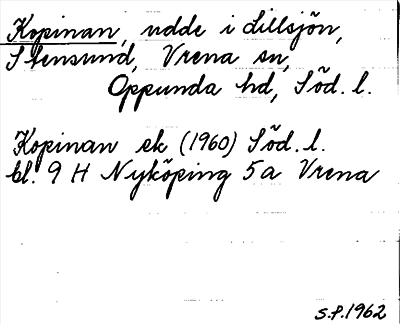 Kopinan, udde i Lillsjön,
Stensund, Vrena sn,
Oppunda hd, Söd. l.
Kopinan ek (1960) Söd. l.
bl. 9 H Nyköping 5a Vrena
S.P. 1962